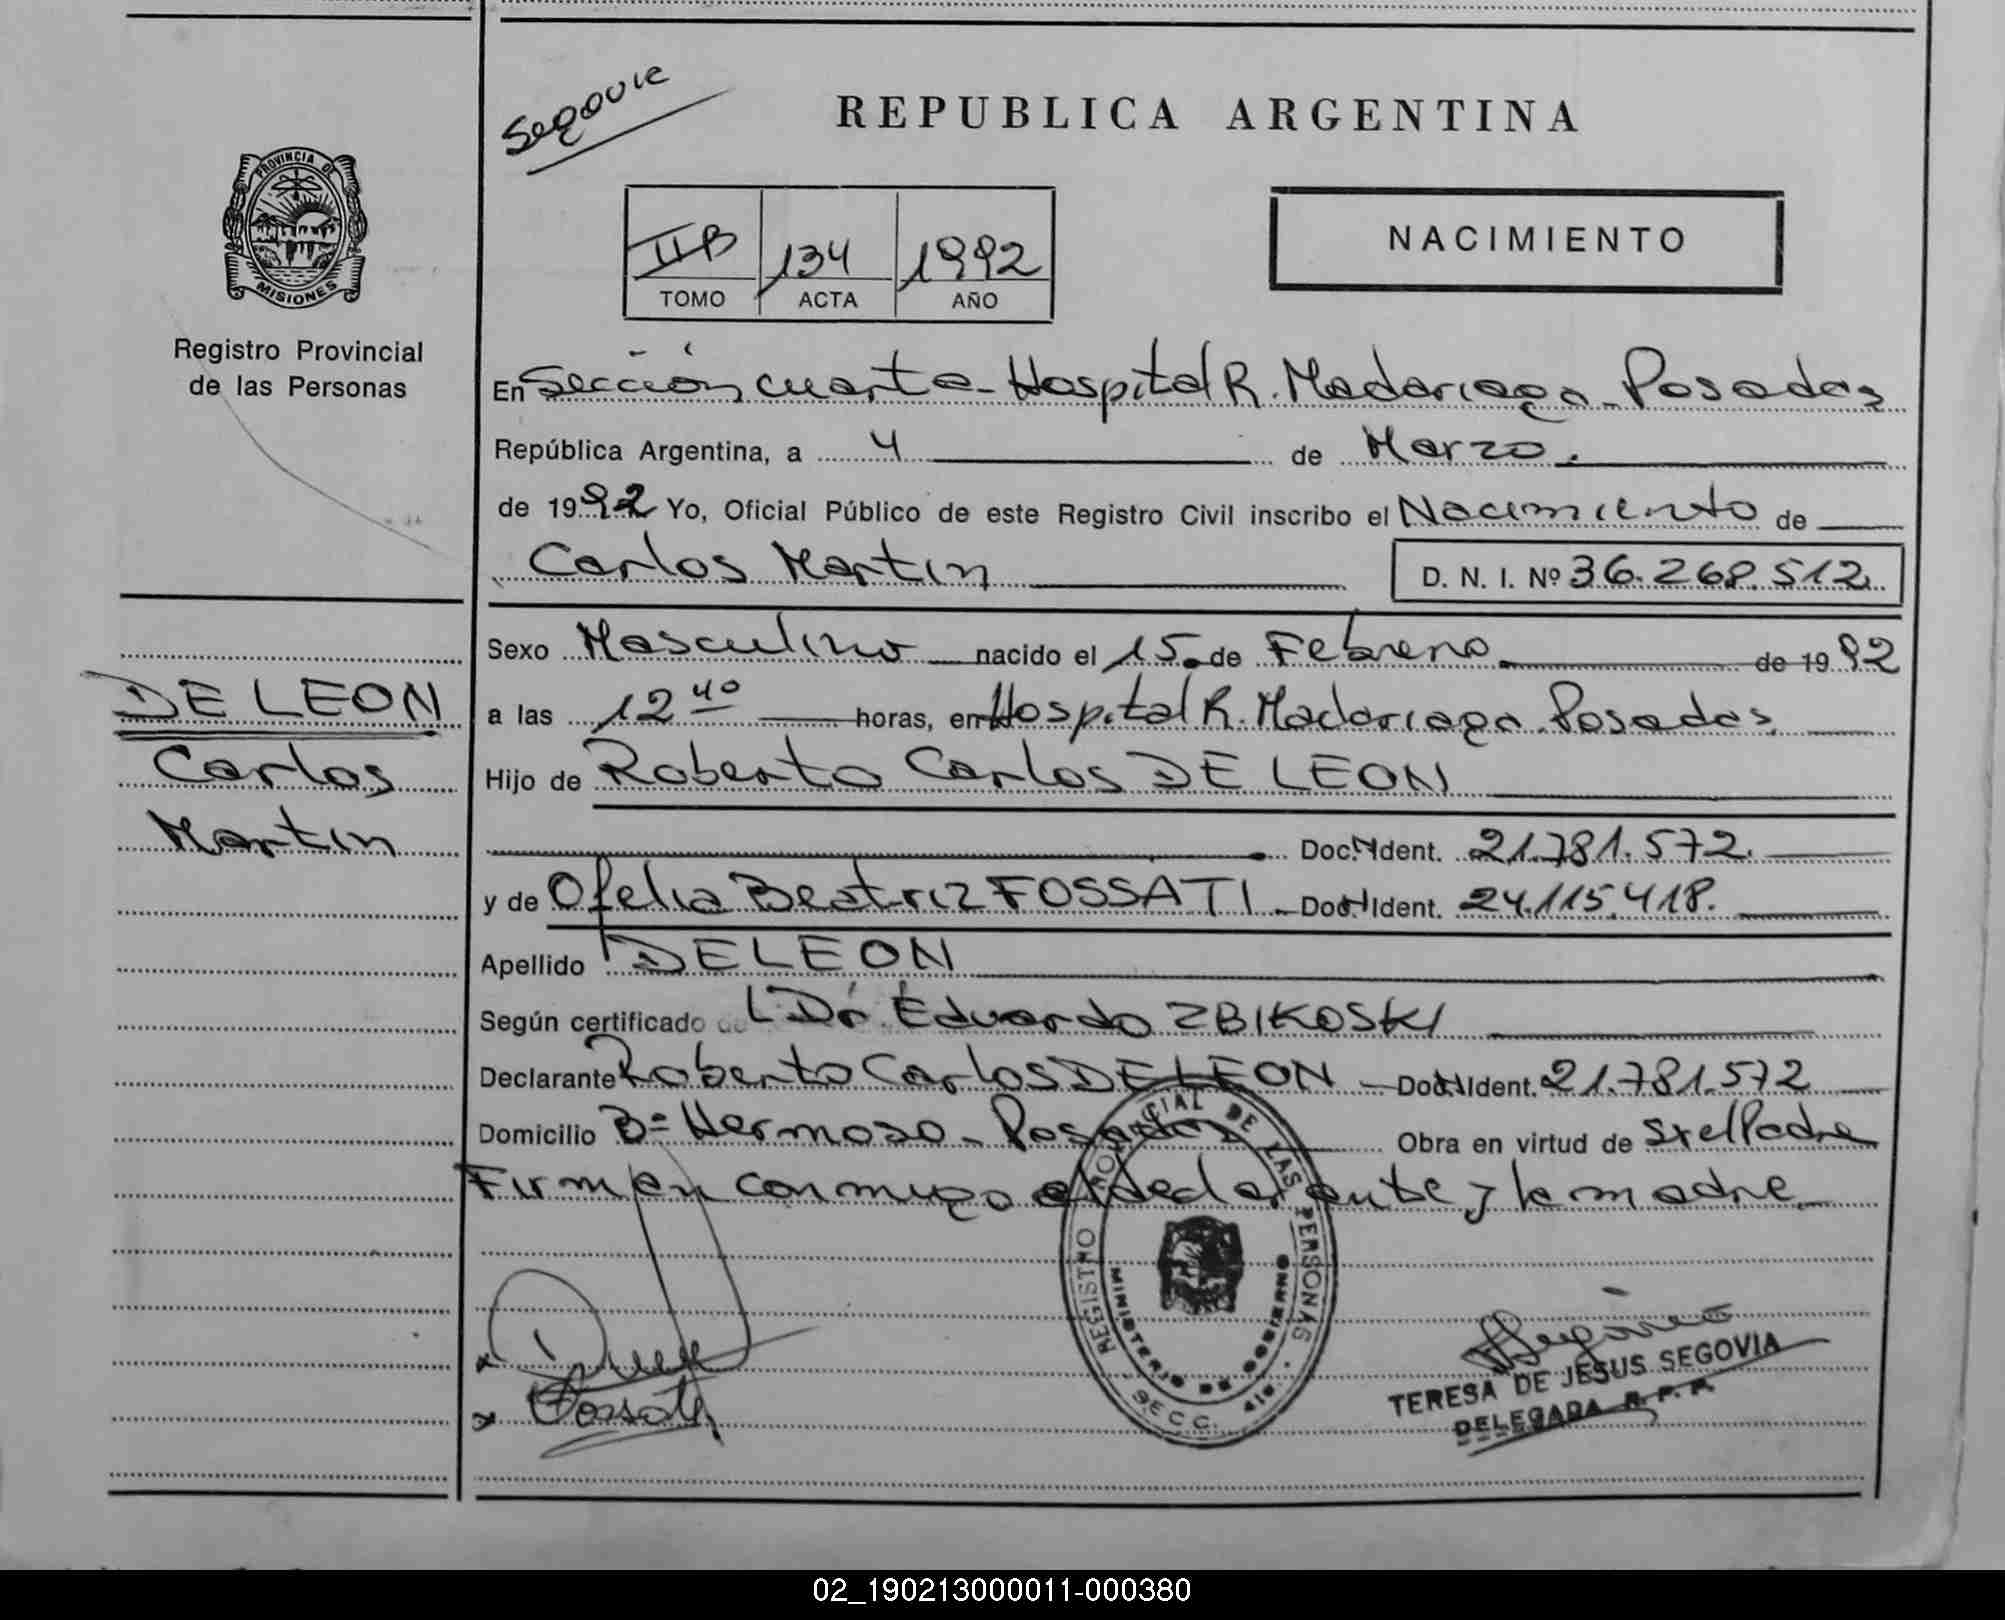 Segovia
REPUBLICA ARGENTINA
PROVINCIA DE
MISIONES
Registro Provincial
de las Personas
II B 134 1992
TOMO ACTA AÑO
NACIMIENTO
En Sección cuarta - Hospital R. Madariaga - Posadas
República Argentina, a 4 de Marzo.
de 1992 Yo, Oficial Público de este Registro Civil inscribo el Nacimiento de
Carlos Martin D. N. I. Nº 36.268.512
Sexo Masculino nacido el 15 de Febrero de 1992
a las 12 40 horas, en Hospital R. Madariaga. Posadas
Hijo de Roberto Carlos DE LEON
Doc. Ident. 21.781.572.
y de Ofelia Beatriz FOSSATI - Doc. Ident. 24.115.418.
Apellido DE LEON
Según certificado del Dr. Eduardo ZBIKOSKI
Declarante Roberto Carlos DE LEON - Doc. Ident. 21.781.572
Domicilio Bº Hermoso - Posadas Obra en virtud de ser el Padre
Firman conmigo el declarante y la madre
DE LEON
Carlos
Martin
REGISTRO PROVINCIAL DE LAS PERSONAS
MINISTERIO DE GOBIERNO
SECC. 4ta.
Fossati
Segovia
TERESA DE JESUS SEGOVIA
DELEGADA R. P. P.
02_190213000011-000380